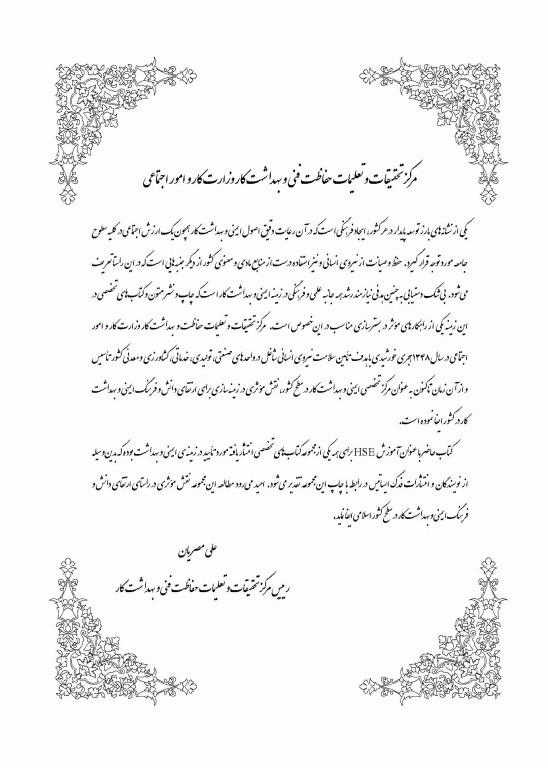 مرکز تحقیقات و تعلیمات حفاظت فنی و بهداشت کار وزارت کار و امور اجتماعی
یکی از نشانه‌های بارز توسعه پایدار در هر کشور، ایجاد فرهنگی است که در آن رعایت دقیق اصول ایمنی و بهداشت کار همچون یک ارزش اجتماعی در کلیه سطوح
جامعه مورد توجه قرار گیرد. حفظ و صیانت از نیروی انسانی و نیز استفاده درست از منابع مادی و معنوی کشور از دیگر جنبه‌هایی است که در این راستا تعریف
می‌شود. بی‌شک دستیابی به چنین مدنی نیازمند رشد همه جانبه علمی و فرهنگی در زمینه ایمنی و بهداشت کار است که چاپ و نشر متون و کتاب‌های تخصصی در
این زمینه یکی از راهکارهای مؤثر در بسترسازی مناسب در این خصوص است. مرکز تحقیقات و تعلیمات حفاظت و بهداشت کار وزارت کار و امور
اجتماعی در سال ۱۳۴۸ هجری خورشیدی با هدف تأمین سلامت نیروی انسانی شاغل در واحدهای صنعتی، تولیدی، خدماتی، کشاورزی و معدنی کشور تاسیس
و از آن زمان تاکنون به عنوان مرکز تخصصی ایمنی و بهداشت کار در سطح کشور، نقش مؤثری در زمینه سازی برای ارتقای دانش و فرهنگ ایمنی و بهداشت
کار در کشور ایفا نموده است.
کتاب حاضر با عنوان آموزش HSE برای همه یکی از مجموعه کتاب‌های تخصصی انتشار یافته مورد تأیید در زمینه‌ی ایمنی و بهداشت بوده که بدین وسیله
از نویسندگان و انتشارات فدک ایساتیس در رابطه با چاپ این مجموعه تقدیر می‌شود. امید می‌رود مطالعه این مجموعه نقش مؤثری در راستای ارتقای دانش و
فرهنگ ایمنی و بهداشت کار در سطح کشور اسلامی ایفا نماید.
علی مصریان
رییس مرکز تحقیقات و تعلیمات حفاظت فنی و بهداشت کار